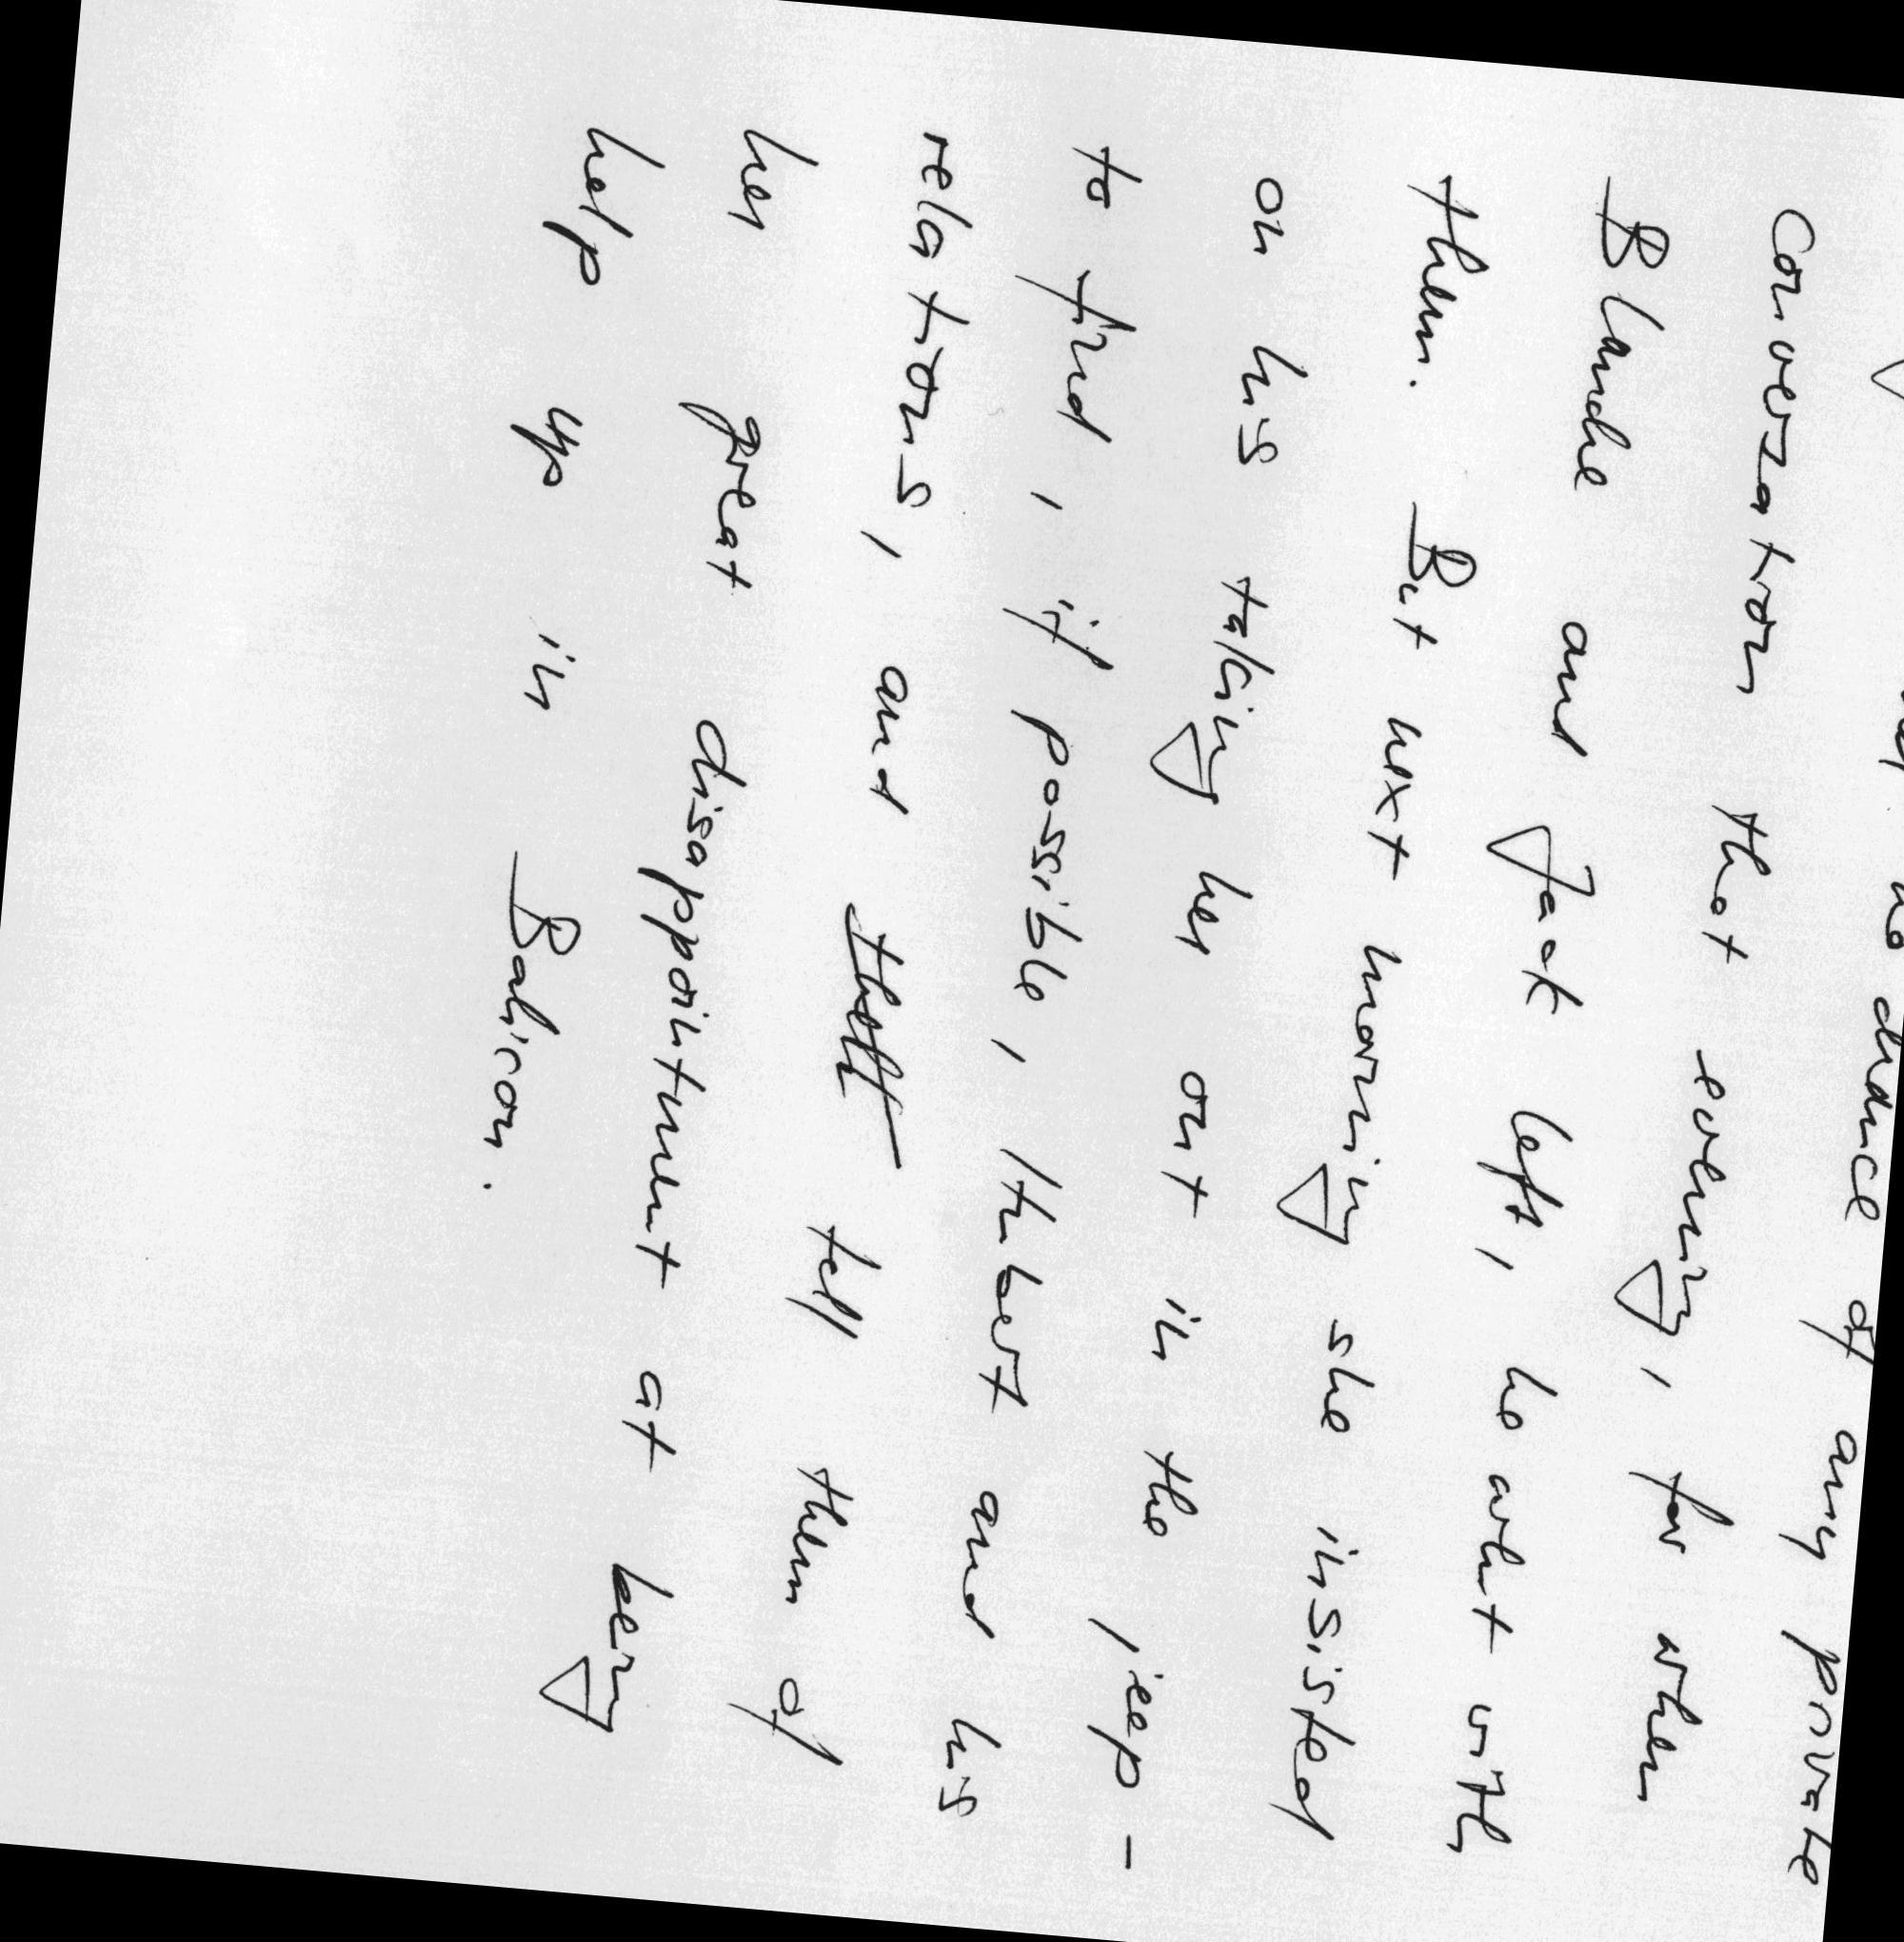 no chance of any private
conversation that evening, for when
Blanche and Jack left, he went with
them. But next morning she insisted
on his taking her out in the jeep -
to find, if possible, Hubert and his
relations, and tell them of
her great disappointment at being
help up in Balicon.